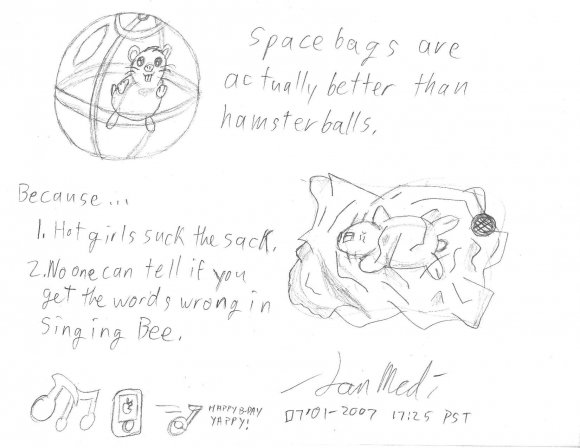 Spacebags are
actually better than
hamsterballs.
Because...
1. Hot girls suck the sack.
2. No one can tell if you
get the words wrong in
Singing Bee.
HAPPY B-DAY
YAPPY!
07-01-2007 17:25 PST